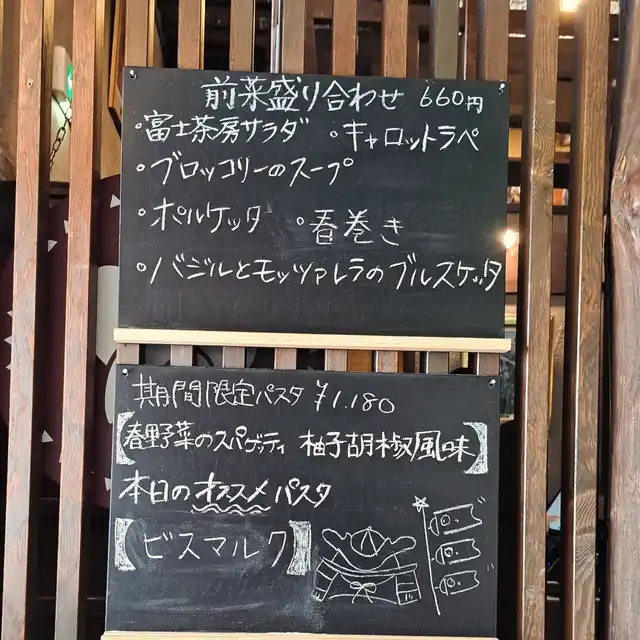 前菜盛り合わせ 660円
・富士茶房サラダ ・キャロットラペ
・ブロッコリーのスープ
・ポルケッタ ・春巻き
・バジルとモッツァレラのブルスケッタ
期間限定パスタ ¥1.180
【春野菜のスパゲッティ 柚子胡椒風味】
本日のオススメパスタ
【ビスマルク】